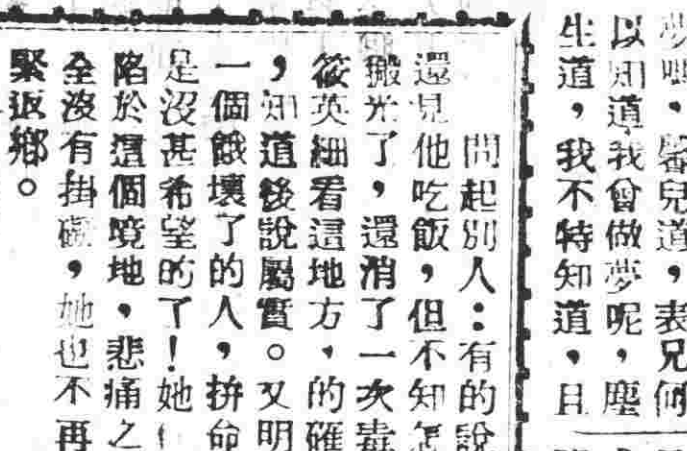 夢呢，馨兒道，表兄何
以知道我會做夢呢，塵
生道，我不特知道，且
問起別人：有的說
還見他吃飯，但不知怎
搬光了，還消了一次毒
筱英細看這地方，的確
，知道後說屬實。又明
一個餓壞了的人，拚命
是沒甚希望的了！她
陷於這個境地，悲痛之
全沒有掛礙，她也不再
緊返鄉。